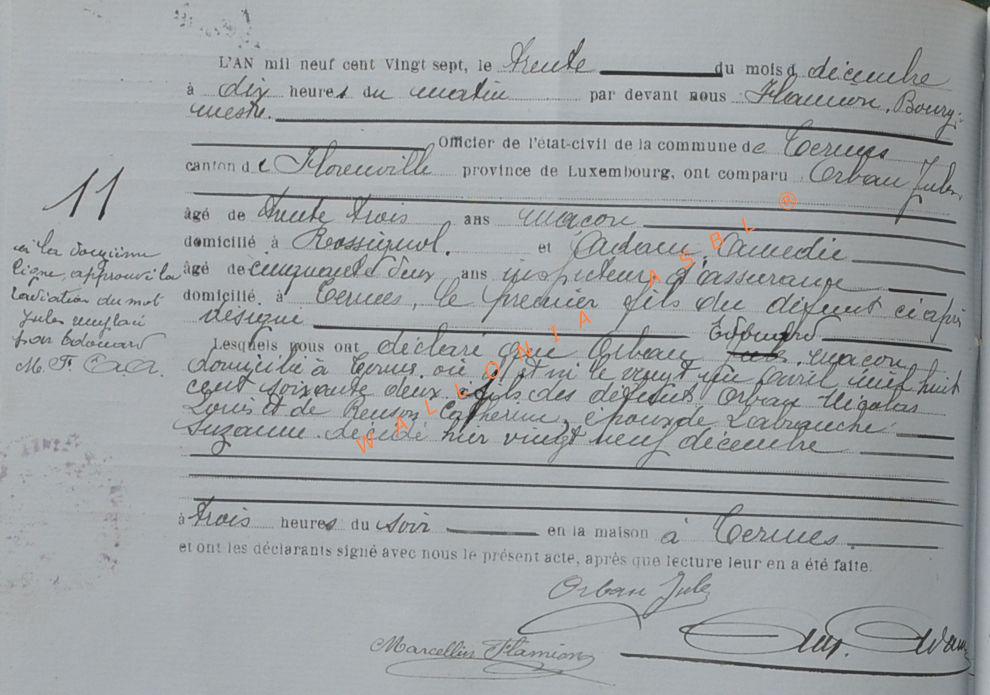 L'AN mil neuf cent vingt sept, le trente du mois d décembre
à dix heures du matin par devant nous Flamion, Bourg-
mestre.
Officier de l'état-civil de la commune de Termes
canton de Florenville province de Luxembourg, ont comparu Orban Jules
âgé de trente trois ans maçon
domicilié à Rossignol. et Adam Amédée
âgé de cinquante deux ans inspecteur d'assurance
domicilié à Termes, le premier fils du défunt ci après
désigné
Edouard
Lesquels nous ont déclaré que Orban maçon
domicilié à Termes où il est né le vingt un avril mil huit
cent soixante deux fils des défunts Orban Nicolas
Louis et de Renson Catherine, époux de Labranche
Suzanne. décédé hier vingt neuf décembre
à trois heures du soir en la maison à Termes.
et ont les déclarants signé avec nous le présent acte, après que lecture leur en a été faite.
11
à la douzième
ligne, approuvé la
radiation du mot
Jules remplacé
par Edouard
M. F.
Orban Jules
Marcellin Flamion
WALLONIA ASBL ®